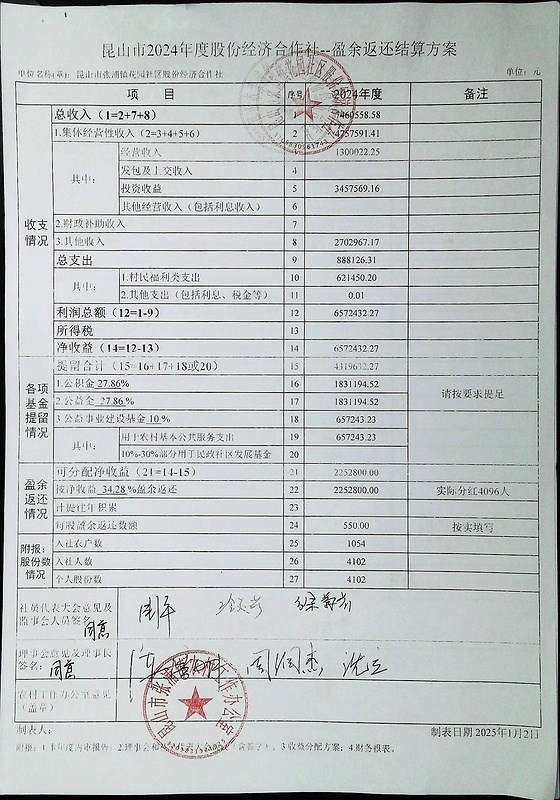 昆山市2024年度股份经济合作社--盈余返还结算方案
单位名称(章)：昆山市张浦镇花园社区股份经济合作社 单位：元
项 目 序号 2024年度 备注
收支情况
总收入（1=2+7+8） 1 7460558.58
1.集体经营性收入（2=3+4+5+6） 2 4757591.41
其中：
经营收入 1300022.25
发包及上交收入 4
投资收益 5 3457569.16
其他经营收入（包括利息收入） 6
2.财政补助收入 7
3.其他收入 8 2702967.17
总支出 9 888126.31
其中：
1.村民福利类支出 10 621450.20
2.其他支出（包括利息、税金等） 11 0.01
利润总额（12=1-9） 12 6572432.27
所得税 13
净收益（14=12-13） 14 6572432.27
各项基金提留情况
提留合计（15=16+17+18或20） 15 4319632.27
1.公积金 27.86% 16 1831194.52 请按要求提足
2.公益金 27.86 % 17 1831194.52
3.公益事业建设基金 10 % 18 657243.23
其中：
用于农村基本公共服务支出 19 657243.23
10%-30%部分用于民政社区发展基金 20
盈余返还情况
可分配净收益（21=14-15） 21 2252800.00
按净收益 34.28 %盈余返还 22 2252800.00 实际分红4096人
计提往年积累 23
每股盈余返还数额 24 550.00 按实填写
附报：股份数情况
入社农户数 25 1054
入社人数 26 4102
个人股份数 27 4102
社员代表大会意见及监事会人员签名：
同意
理事会意见及理事长签名：
同意
农村工作办公室意见（盖章）
制表人： 制表日期 2025年1月2日
附报：1.本年度内审报告；2.理事会和社员代表大会决议（含签字）；3.收益分配方案；4.财务报表。